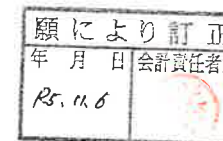 願により訂正
年 月 日 会計責任者
R5.11.6